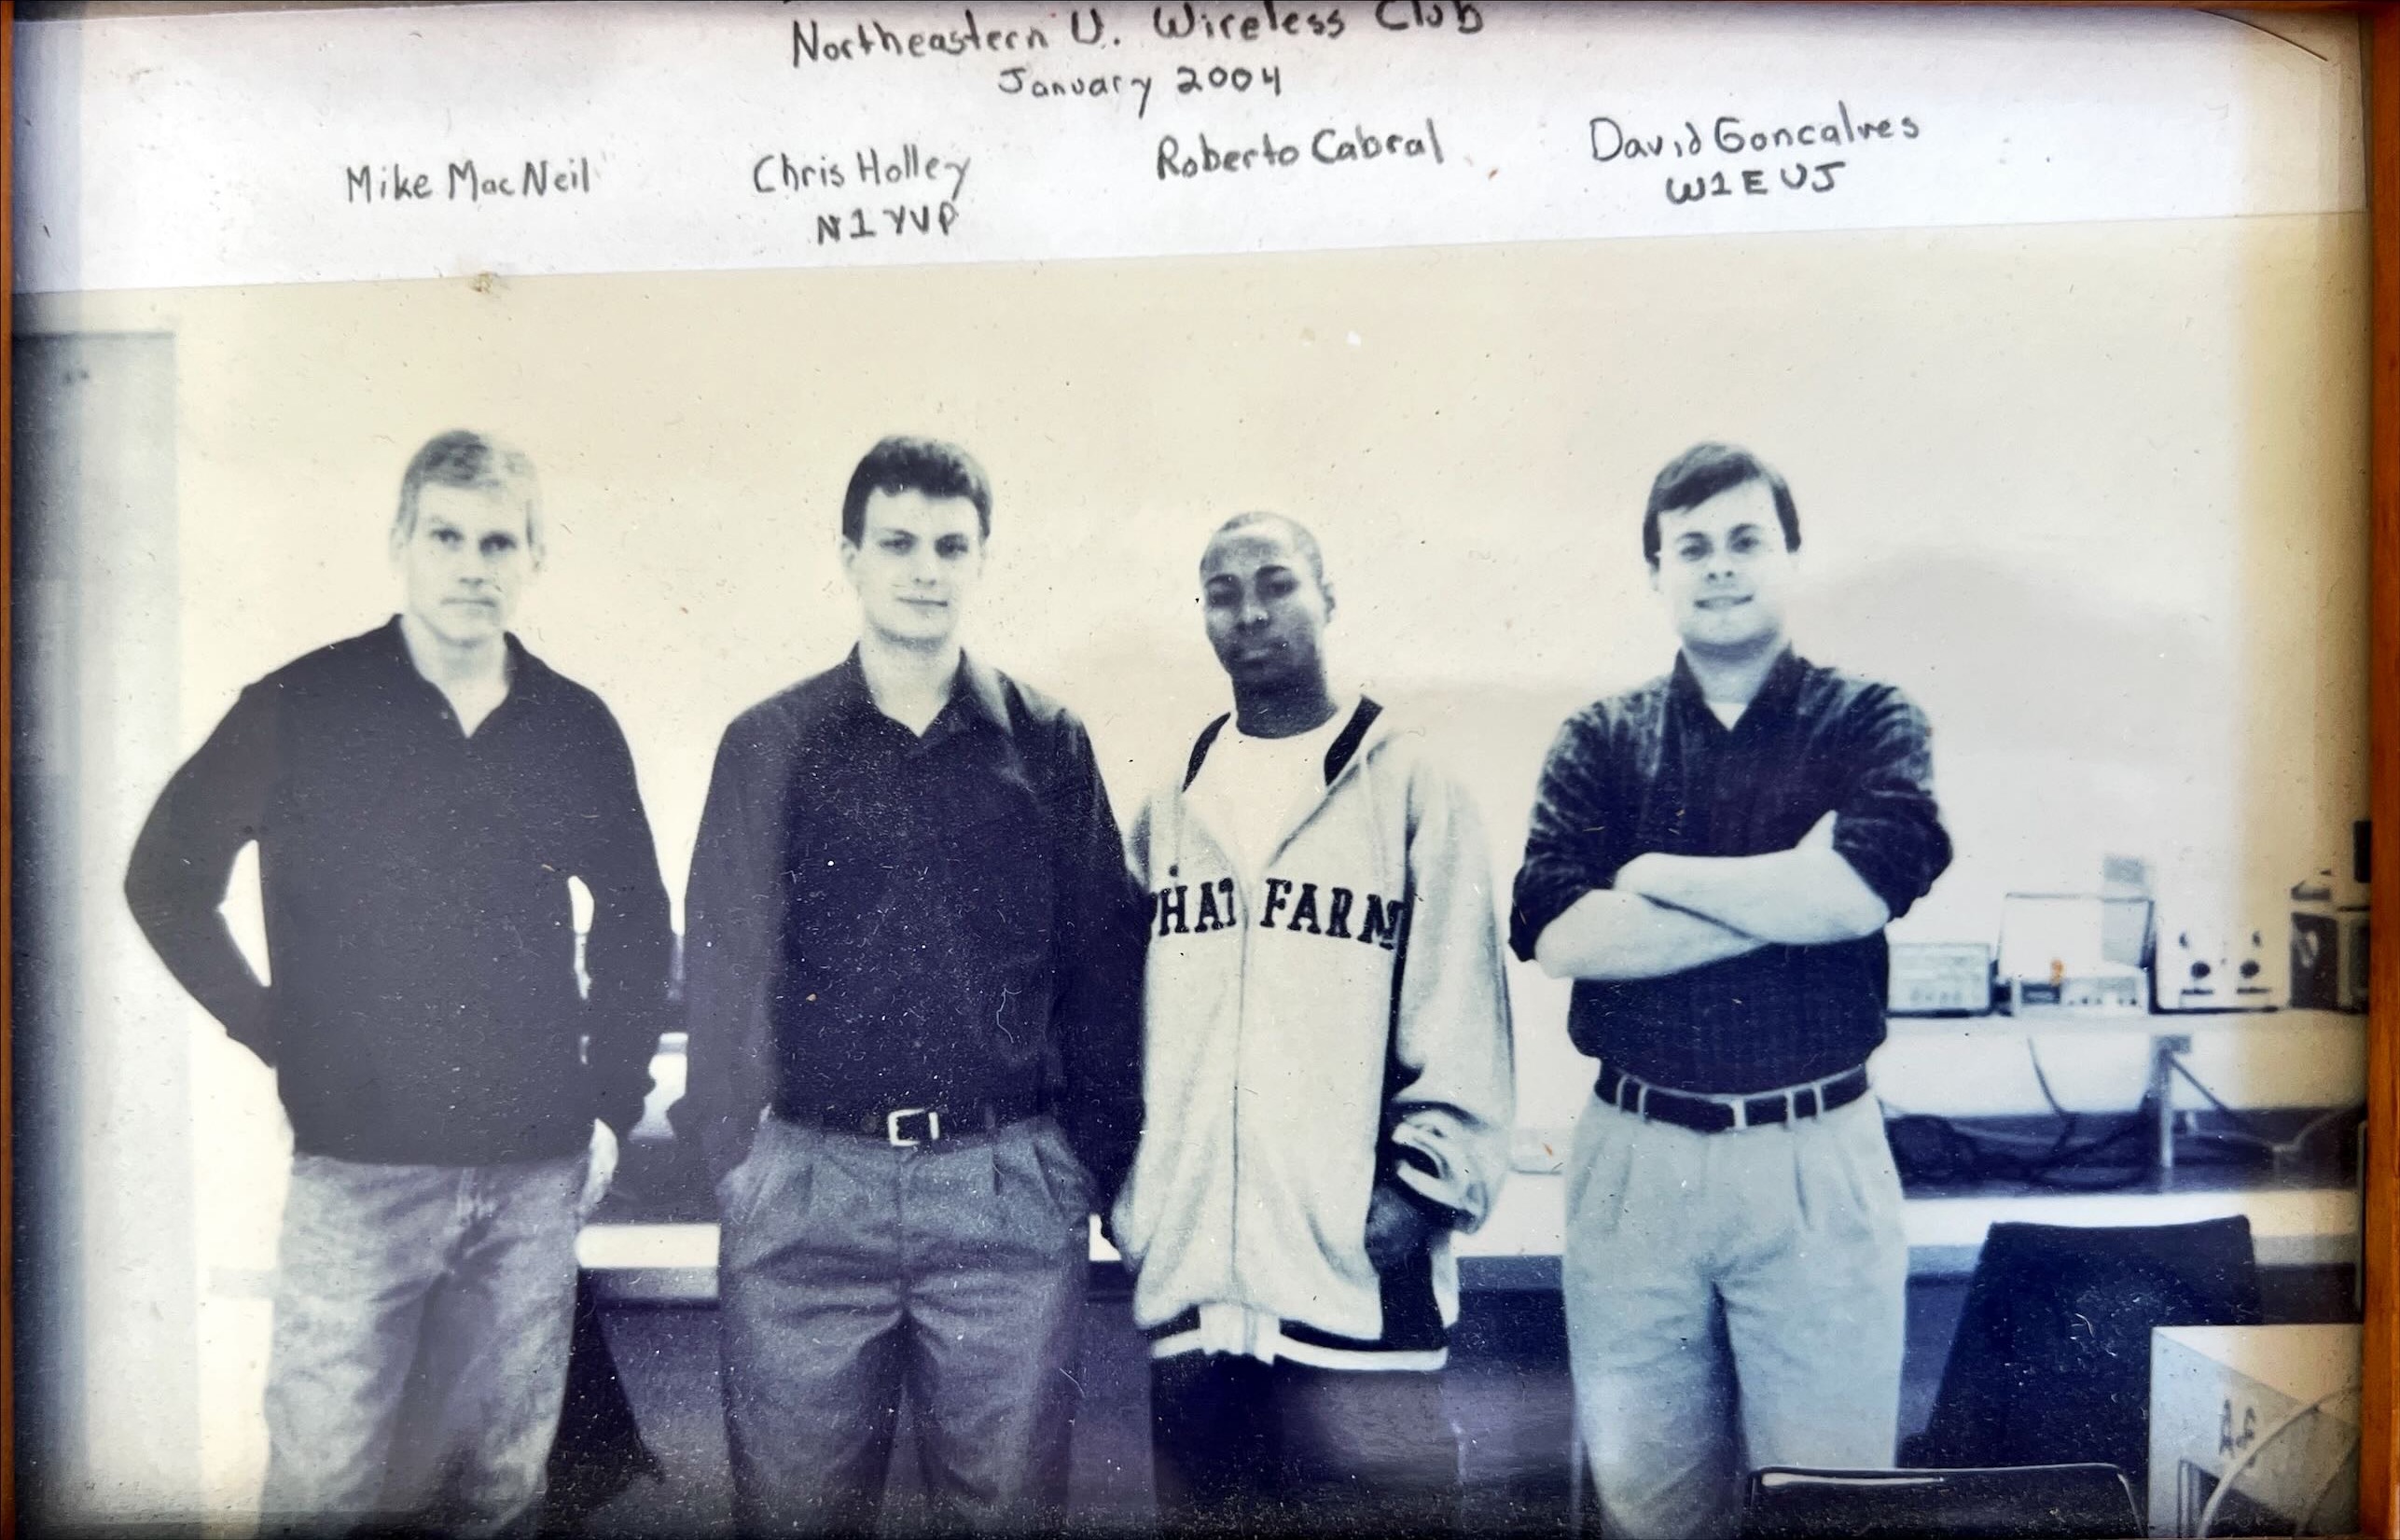 Northeastern U. Wireless Club
January 2004
Mike MacNeil
Chris Holley
N1YVP
Roberto Cabral
David Goncalves
W1EUJ
PHAT FARM